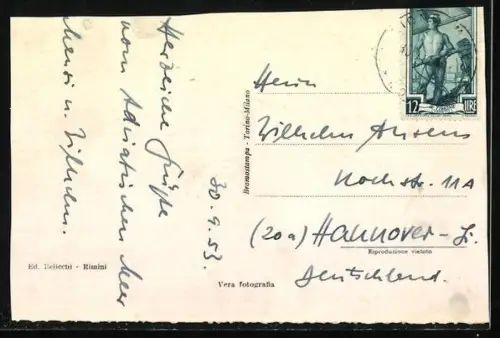 Herzliche Grüße
vom Adriatischen Meer
u. Wilhelm.
30.9.53.
Ed. Bellechi - Rimini
Vera fotografia
Bromostampa - Torino-Milano
12 LIRE
Herrn
Wilhelm Ahrens
Kochstr. 11A
(20a) Hannover-Li.
Riproduzione vietata
Deutschland.